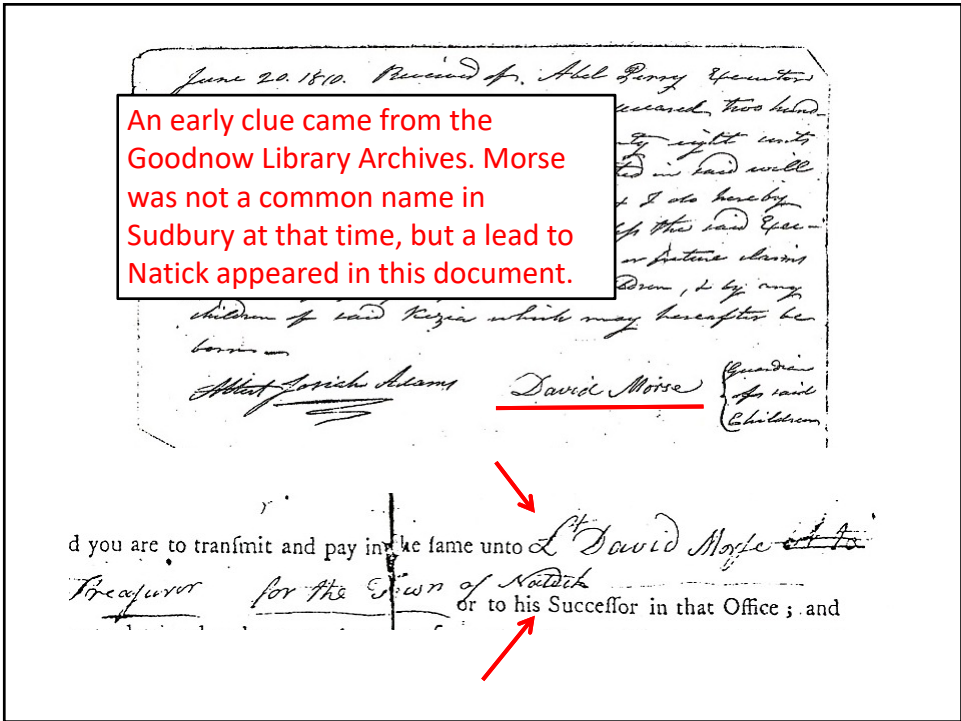 June 20. 1810. Received of Abel Perry Executor
An early clue came from the
Goodnow Library Archives. Morse
was not a common name in
Sudbury at that time, but a lead to
Natick appeared in this document.
deceased, two hund-
ty eight cents
ted in said will
I do hereby
the said Exec-
or future claims
dren, & by any
children of said Kezia which may hereafter be
born
Attest Josiah Adams David Morse
Guardian
of said
Children
d you are to tranſmit and pay in he ſame unto Lt David Morſe
Treaſurer for the Town of Natick
or to his Succeſſor in that Office; and